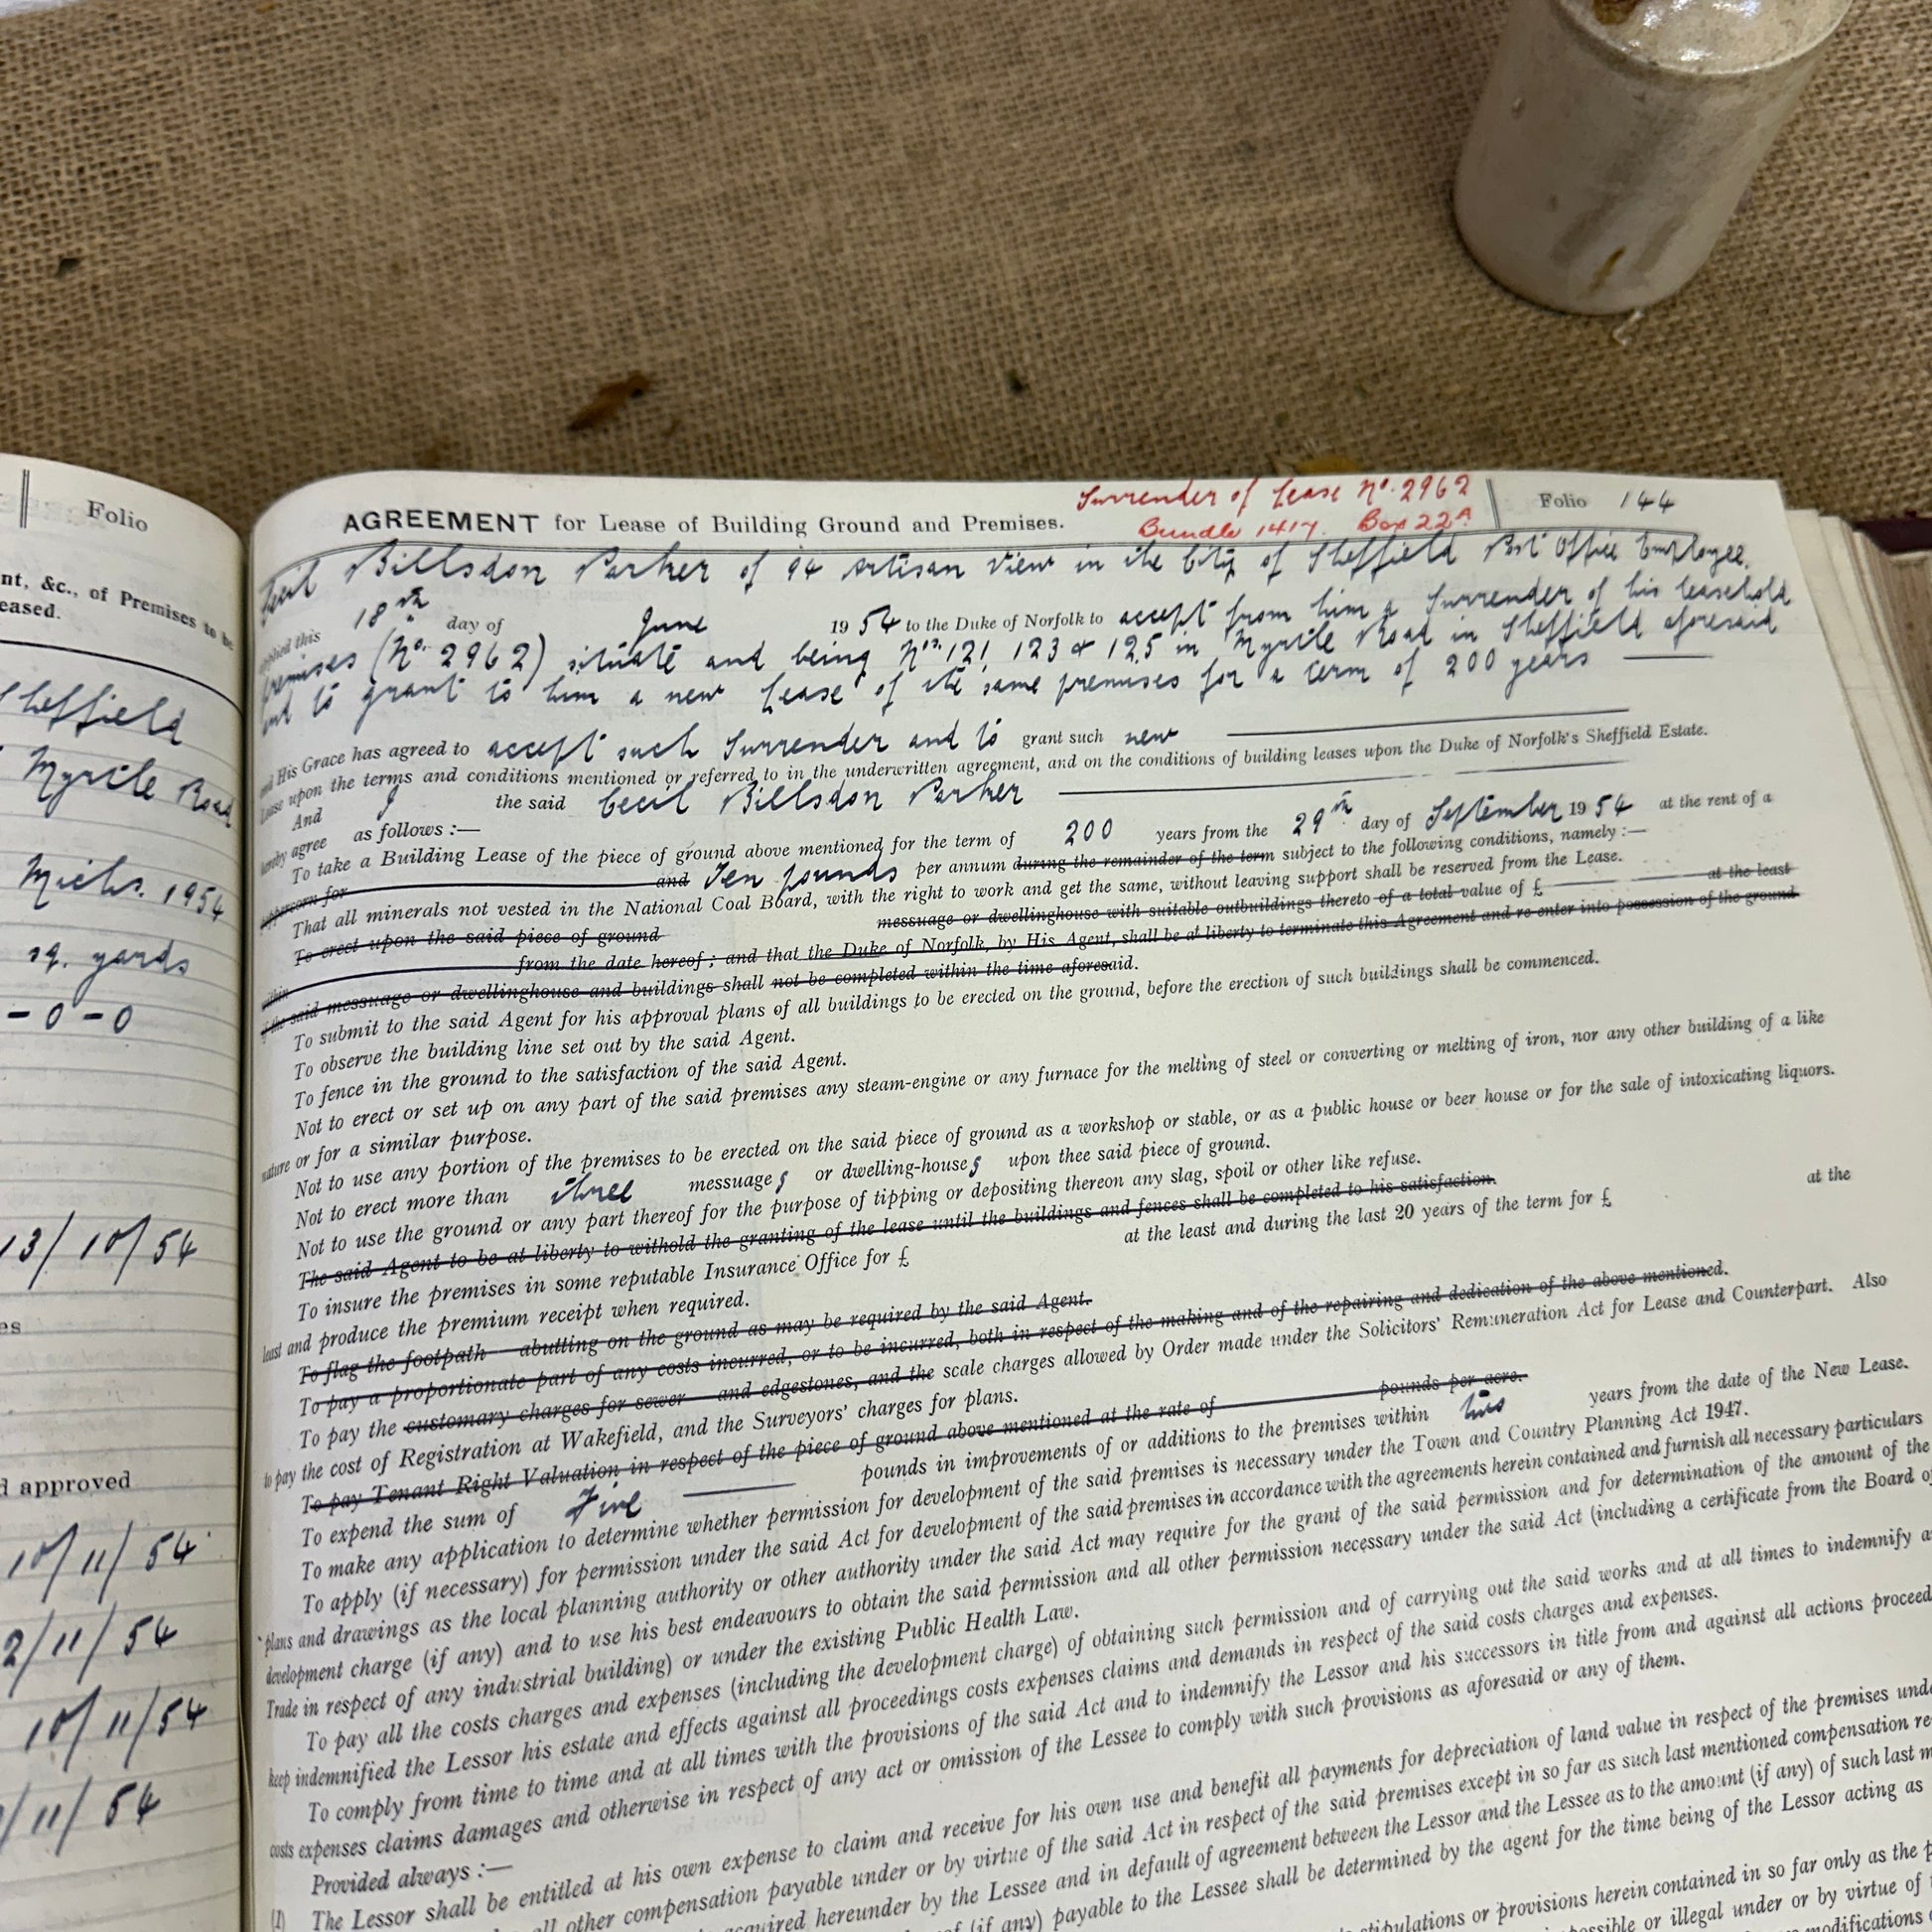 Folio
nt, &c., of Premises to be
eased.
Sheffield
Myrtle Road
Michs. 1954
sq. yards
-0-0
13/10/54
es
d approved
10/11/54
2/11/54
10/11/54
/11/54
AGREEMENT for Lease of Building Ground and Premises.
Surrender of Lease No. 2962
Bundle 1417. Box 22A
Folio 144
Cecil Billsdon Parker of 94 Artisan View in the City of Sheffield Post Office Employee,
applied this 18th day of June 1954 to the Duke of Norfolk to accept from him a Surrender of his leasehold
premises (No. 2962) situate and being Nos. 121, 123 & 125 in Myrtle Road in Sheffield aforesaid
and to grant to him a new Lease of the same premises for a term of 200 years
and His Grace has agreed to accept such Surrender and to grant such new
Lease upon the terms and conditions mentioned or referred to in the underwritten agreement, and on the conditions of building leases upon the Duke of Norfolk's Sheffield Estate.
And I the said Cecil Billsdon Parker
hereby agree as follows :—
To take a Building Lease of the piece of ground above mentioned for the term of 200 years from the 29th day of September 1954 at the rent of a
peppercorn for and Ten pounds per annum during the remainder of the term subject to the following conditions, namely :—
That all minerals not vested in the National Coal Board, with the right to work and get the same, without leaving support shall be reserved from the Lease.
To erect upon the said piece of ground messuage or dwellinghouse with suitable outbuildings thereto of a total value of £ at the least
within from the date hereof ; and that the Duke of Norfolk, by His Agent, shall be at liberty to terminate this Agreement and re-enter into possession of the ground
if the said messuage or dwellinghouse and buildings shall not be completed within the time aforesaid.
To submit to the said Agent for his approval plans of all buildings to be erected on the ground, before the erection of such buildings shall be commenced.
To observe the building line set out by the said Agent.
To fence in the ground to the satisfaction of the said Agent.
Not to erect or set up on any part of the said premises any steam-engine or any furnace for the melting of steel or converting or melting of iron, nor any other building of a like
nature or for a similar purpose.
Not to use any portion of the premises to be erected on the said piece of ground as a workshop or stable, or as a public house or beer house or for the sale of intoxicating liquors.
Not to erect more than three messuages or dwelling-houses upon thee said piece of ground.
Not to use the ground or any part thereof for the purpose of tipping or depositing thereon any slag, spoil or other like refuse.
The said Agent to be at liberty to withold the granting of the lease until the buildings and fences shall be completed to his satisfaction.
To insure the premises in some reputable Insurance Office for £ at the least and during the last 20 years of the term for £ at the
least and produce the premium receipt when required.
To flag the footpath abutting on the ground as may be required by the said Agent.
To pay a proportionate part of any costs incurred, or to be incurred, both in respect of the making and of the repairing and dedication of the above mentioned.
To pay the customary charges for sewer and edgestones, and the scale charges allowed by Order made under the Solicitors' Remuneration Act for Lease and Counterpart. Also
to pay the cost of Registration at Wakefield, and the Surveyors' charges for plans.
To pay Tenant Right Valuation in respect of the piece of ground above mentioned at the rate of pounds per acre.
To expend the sum of Five pounds in improvements of or additions to the premises within two years from the date of the New Lease.
To make any application to determine whether permission for development of the said premises is necessary under the Town and Country Planning Act 1947.
To apply (if necessary) for permission under the said Act for development of the said premises in accordance with the agreements herein contained and furnish all necessary particulars
plans and drawings as the local planning authority or other authority under the said Act may require for the grant of the said permission and for determination of the amount of the
development charge (if any) and to use his best endeavours to obtain the said permission and all other permission necessary under the said Act (including a certificate from the Board of
Trade in respect of any industrial building) or under the existing Public Health Law.
To pay all the costs charges and expenses (including the development charge) of obtaining such permission and of carrying out the said works and at all times to indemnify a
keep indemnified the Lessor his estate and effects against all proceedings costs expenses claims and demands in respect of the said costs charges and expenses.
To comply from time to time and at all times with the provisions of the said Act and to indemnify the Lessor and his successors in title from and against all actions proceed
costs expenses claims damages and otherwise in respect of any act or omission of the Lessee to comply with such provisions as aforesaid or any of them.
Provided always :—
(1) The Lessor shall be entitled at his own expense to claim and receive for his own use and benefit all payments for depreciation of land value in respect of the premises unde
all other compensation payable under or by virtue of the said Act in respect of the said premises except in so far as such last mentioned compensation re
acquired hereunder by the Lessee and in default of agreement between the Lessor and the Lessee as to the amount (if any) of such last m
of (if any) payable to the Lessee shall be determined by the agent for the time being of the Lessor acting as
stipulations or provisions herein contained in so far only as the p
ossible or illegal under or by virtue of
modifications